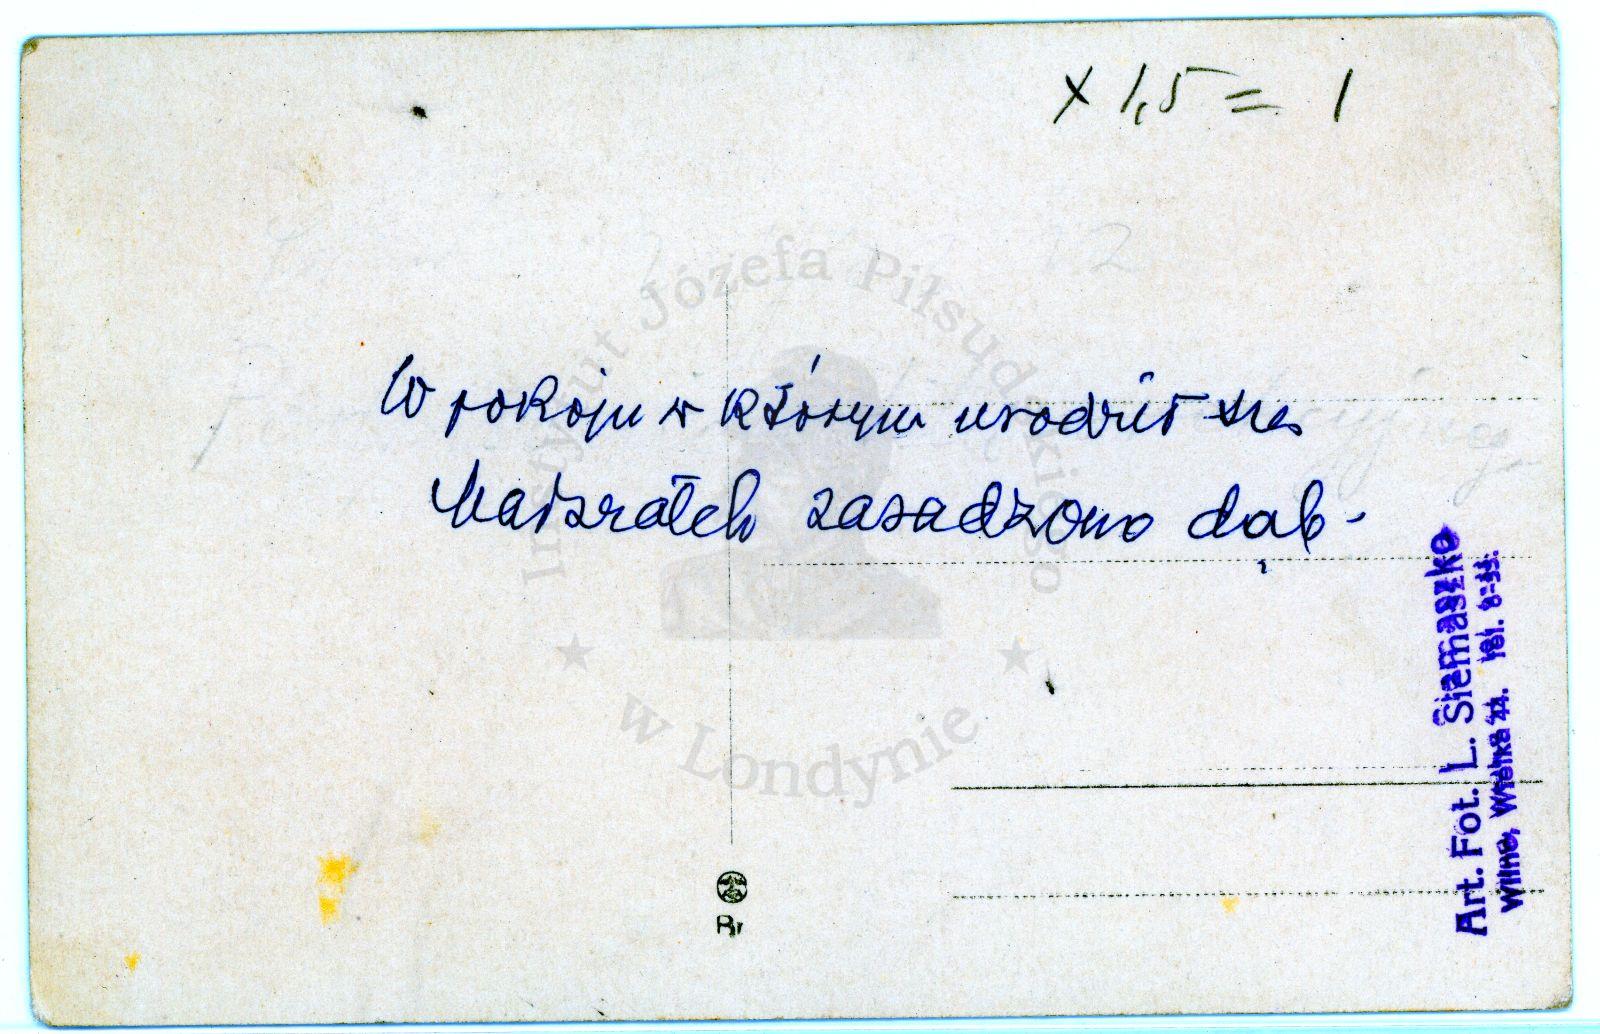 x 1,5 = 1
Instytut Józefa Piłsudskiego
w Londynie
W pokoju w którym urodził się
Marszałek zasadzono dąb -
Art. Fot. L. Siemaszko
Wilno, Wielka 44. tel. 8-55.